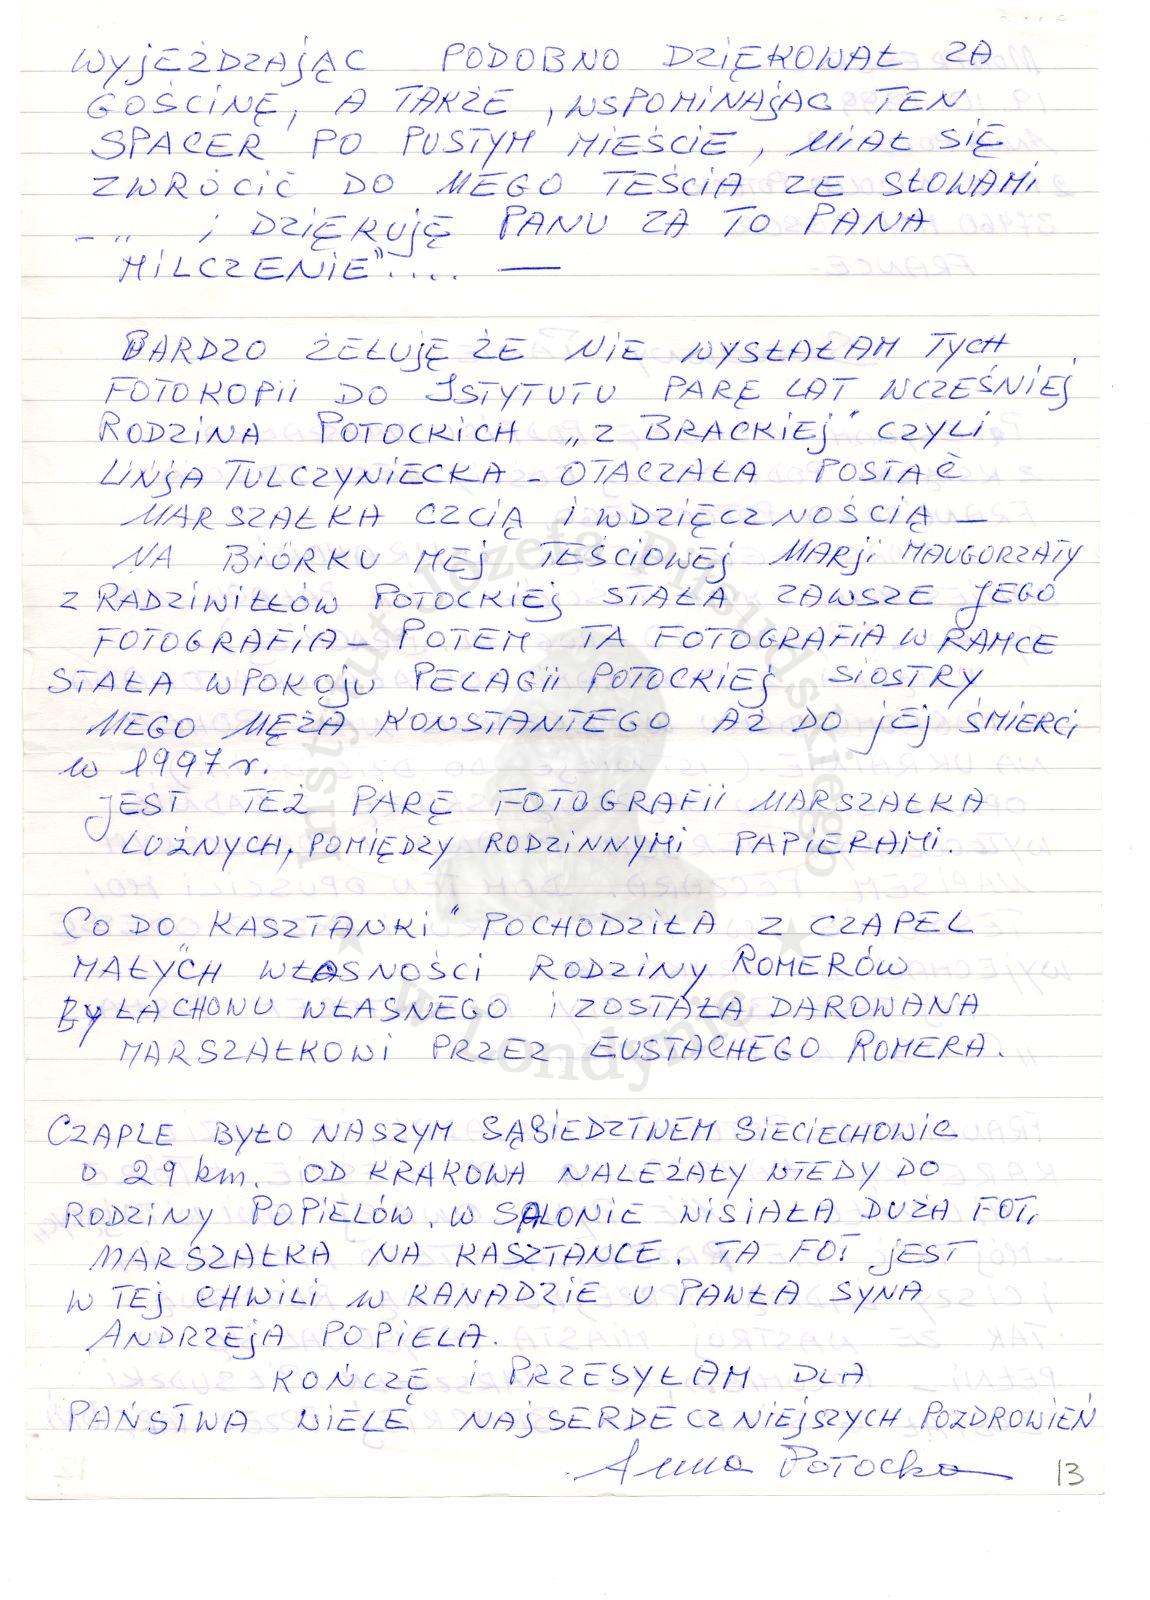 WYJEŻDZAJĄC PODOBNO DZIĘKOWAŁ ZA
GOŚCINĘ, A TAKŻE, WSPOMINAJĄC TEN
SPACER PO PUSTYM MIEŚCIE, MIAŁ SIĘ
ZWRÓCIĆ DO MEGO TEŚCIA ZE SŁOWAMI
- „ i DZIĘKUJĘ PANU ZA TO PANA
MILCZENIE".... —
BARDZO ŻEŁUJĘ ŻE NIE WYSŁAŁAM TYCH
FOTOKOPII DO ISTYTUTU PARĘ LAT WCZEŚNIEJ
RODZINA POTOCKICH „Z BRACKIEJ" CZYLI
LINJA TULCZYNIECKA - OTACZAŁA POSTAĆ
MARSZAŁKA CZCIĄ I WDZIĘCZNOŚCIĄ —
NA BIÓRKU MEJ TEŚCIOWEJ MARJI MAŁGORZATY
Z RADZIWIŁŁÓW POTOCKIEJ STAŁA ZAWSZE JEGO
FOTOGRAFIA - POTEM TA FOTOGRAFIA W RAMCE
STAŁA W POKOJU PELAGII POTOCKIEJ SIOSTRY
MEGO MĘŻA KONSTANTEGO AŻ DO JEJ ŚMIERCI
w 1997 r.
JEST TEŻ PARĘ FOTOGRAFII MARSZAŁKA
LUŹNYCH, POMIĘDZY RODZINNYMI PAPIERAMI.
CO DO „KASZTANKI" POCHODZIŁA Z CZAPEL
MAŁYCH WŁASNOŚCI RODZINY ROMERÓW
BYŁA CHOWU WŁASNEGO I ZOSTAŁA DAROWANA
MARSZAŁKOWI PRZEZ EUSTACHEGO ROMERA.
CZAPLE BYŁO NASZYM SĄSIEDZTWEM SIECIECHOWIC
O 29 km. OD KRAKOWA NALEŻAŁY WTEDY DO
RODZINY POPIELÓW. W SALONIE WISIAŁA DUŻA FOT.
MARSZAŁKA NA KASZTANCE. TA FOT JEST
W TEJ CHWILI W KANADZIE U PAWŁA SYNA
ANDRZEJA POPIELA.
KOŃCZĘ I PRZESYŁAM DLA
PAŃSTWA WIELE NAJSERDECZNIEJSZYCH POZDROWIEŃ
Anna Potocka 13
Instytut Józefa Piłsudskiego
★ w Londynie ★